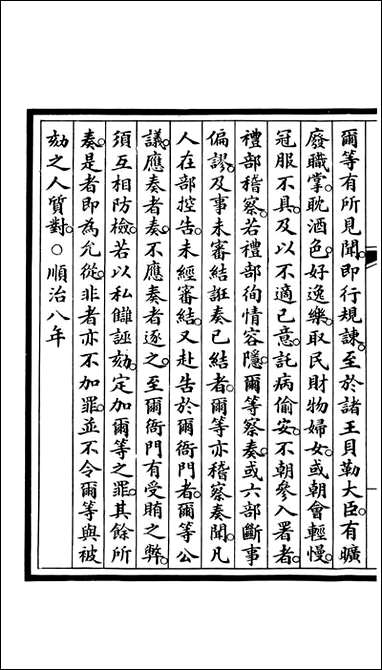 爾等有所見聞。即行規諫。至於諸王貝勒大臣。有曠
廢職掌。耽酒色。好逸樂。取民財物婦女。或朝會輕慢。
冠服不具。及以不適己意。託病偷安。不朝參入署者。
禮部稽察。若禮部徇情容隱。爾等察奏。或六部斷事
偏謬。及事未審結誑奏已結者。爾等亦稽察奏聞。凡
人在部控告。未經審結。又赴告於爾衙門者。爾等公
議。應奏者奏。不應奏者逐之。至爾衙門有受賄之弊。
須互相防檢。若以私讎誣劾。定加爾等之罪。其餘所
奏。是者即為允從。非者亦不加罪。並不令爾等與被
劾之人質對。○順治八年